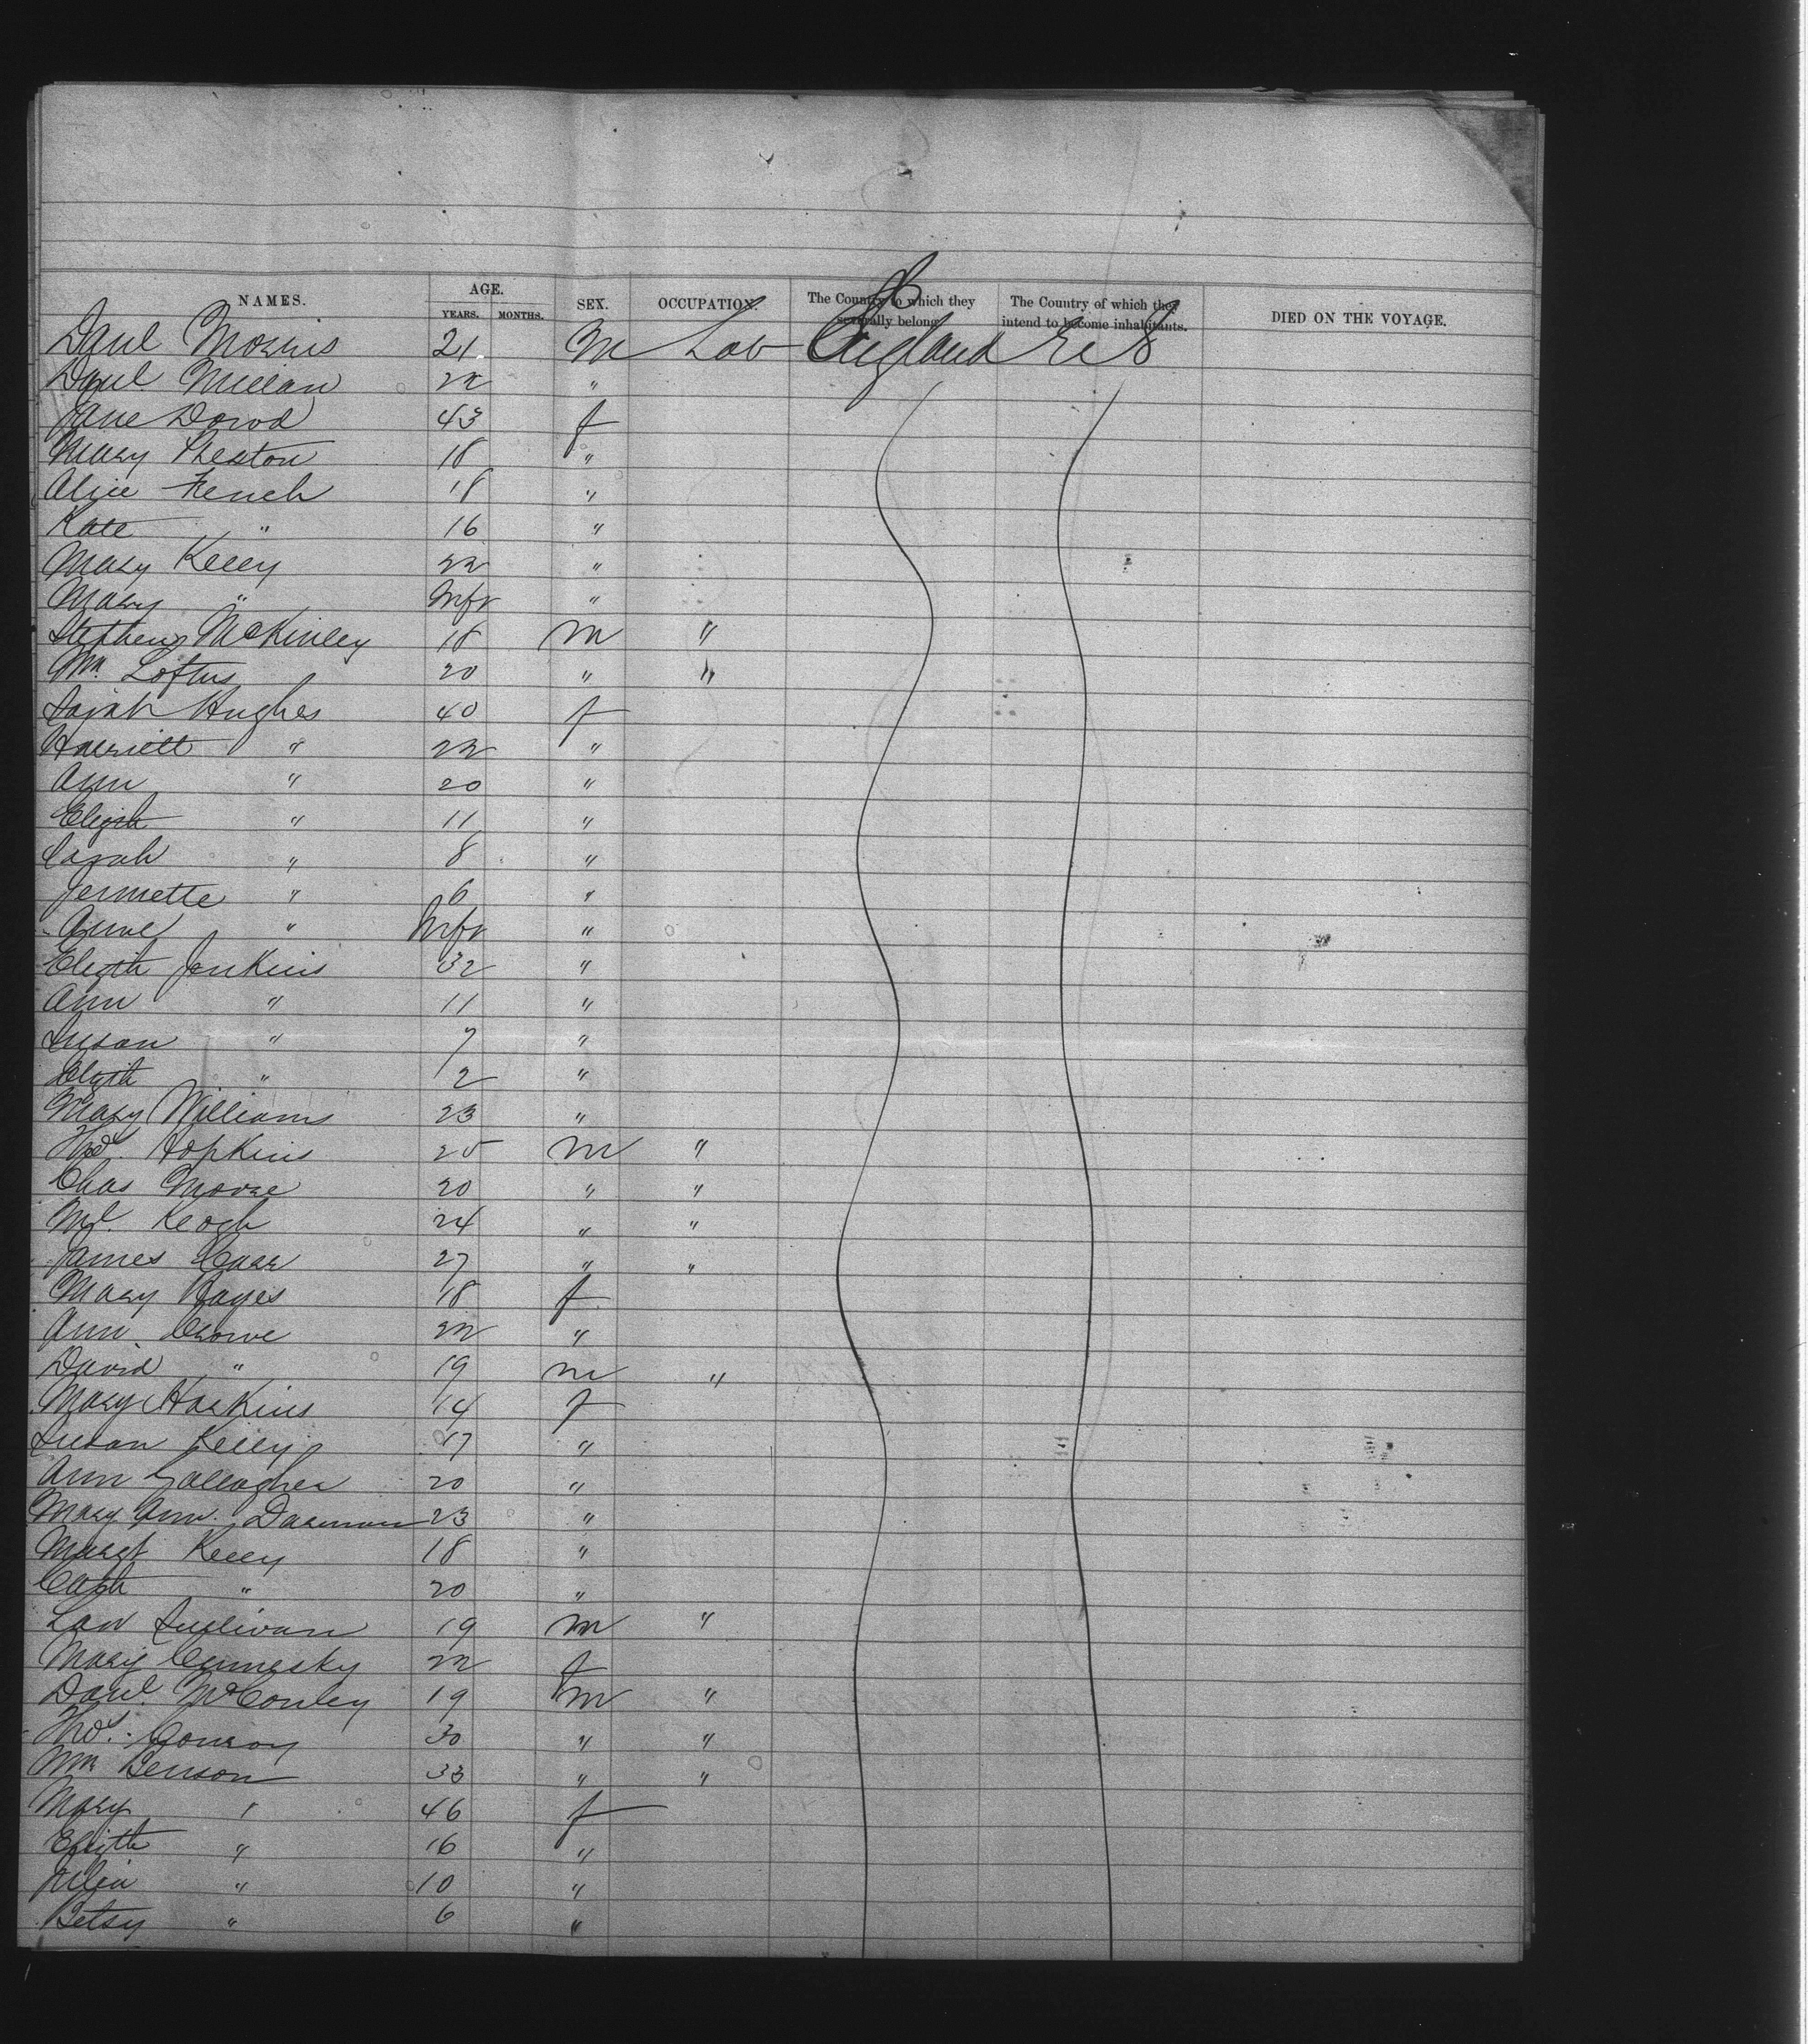 NAMES. AGE. YEARS. MONTHS. SEX. OCCUPATION. The Country to which they severally belong. The Country of which they intend to become inhabitants. DIED ON THE VOYAGE.
Danl Morris 21 M Lab England U S
Danl Millan 22 "
Jane Dowd 43 f
Mary Preston 18 "
Alice French 18 "
Kate " 16 "
Mary Kelly 22 "
Mary " Infr "
Stephen McKinley 18 m "
Wm. Loftus 20 " "
Sarah Hughes 40 f
Harriett " 22 "
Ann " 20 "
Elizth " 11 "
Sarah " 8 "
Jennette " 6 "
Anne " Infr "
Elizth Jenkins 32 "
Ann " 11 "
Susan " 7 "
Elizth " 2 "
Mary Williams 23 "
Thos. Hopkins 25 m "
Chas Moore 20 " "
Ml. Keogh 24 " "
James Carr 27 " "
Mary Hayes 18 f
Ann Crowe 22 "
David " 19 m "
Mary Harkins 14 f
Susan Kelly 17 "
Ann Gallagher 20 "
Mary Ann 23 "
Margt Kelly 18 "
Cath " 20 "
Law Sullivan 19 m "
Mary 22 f
Danl. McConley 19 m "
Thos. Conroy 30 " "
Wm Benson 33 " "
Mary " 46 f
Elizth " 16 "
Julia " 10 "
Betsy " 6 "